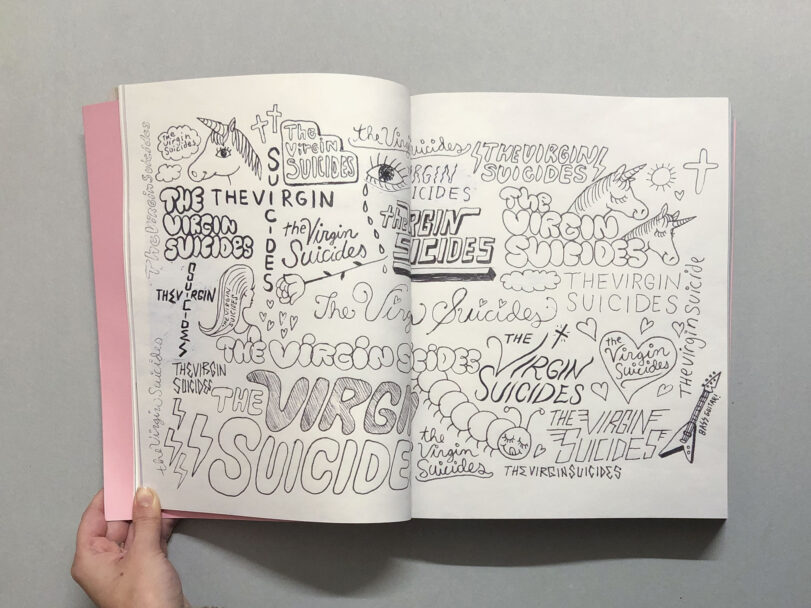 the Virgin Suicides
The
Virgin
Suicides
The
Virgin
SUICIDES
SUICIDES
THE VIRGIN
THE
VIRGIN
SUICIDES
the Virgin
Suicides
THE VIRGIN
SUICIDES
THE VIRGIN
SUICIDES
The Virgin Suicides
THE VIRGIN
SUICIDES
the Virgin Suicides
THE VIRGIN
SUICIDES
the Virgin Suicides
THE VIRGIN
SUICIDES
the
SUICIDES
THE VIRGIN
SUICIDES
THE VIRGIN
SUICIDES
THE VIRGIN
SUICIDES
the Virgin Suicide
THE
VIRGIN
SUICIDES
the
Virgin
Suicides
THE VIRGIN
SUICIDES
BASS GUITAR!
the
Virgin
Suicides
THE VIRGIN SUICIDES